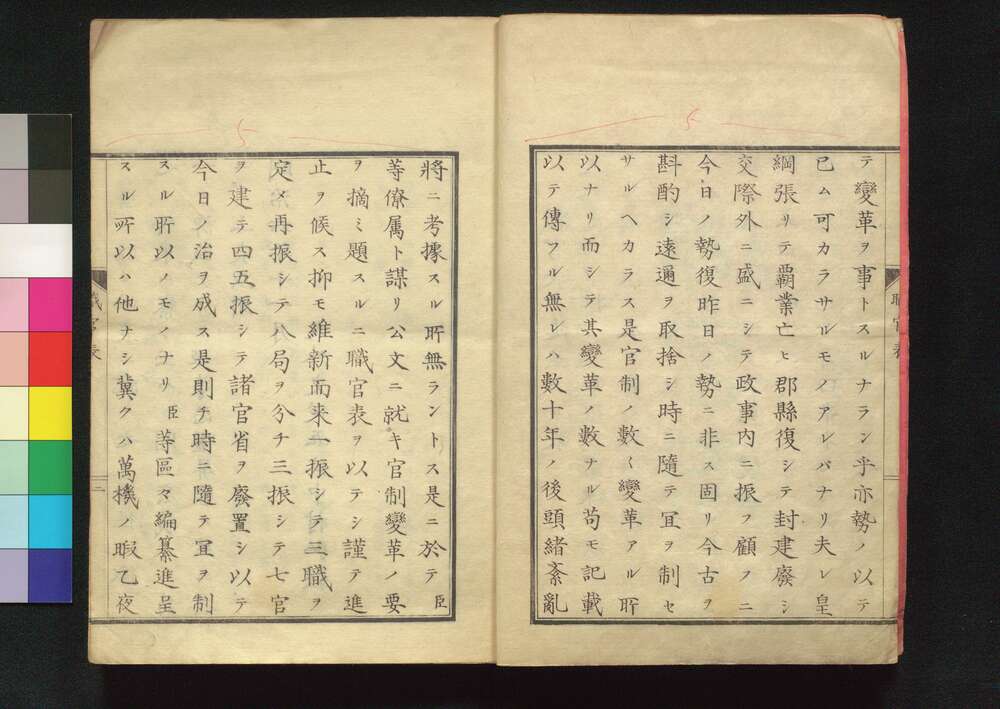 テ變革ヲ事トスルナラン乎亦勢ノ以テ
已ム可カラサルモノアレバナリ夫レ皇
綱張リテ覇業亡ヒ郡縣復シテ封建廢シ
交際外ニ盛ニシテ政事内ニ振フ顧フニ
今日ノ勢復昨日ノ勢ニ非ス固リ今古ヲ
斟酌シ遠邇ヲ取捨シ時ニ隨テ冝ヲ制セ
サルヘカラス是官制ノ數〻變革アル所
以ナリ而シテ其變革ノ數ナル苟モ記載
以テ傳フル無レハ數十年ノ後頭緒紊亂
將ニ考據スル所無ラントス是ニ於テ臣
等僚属ト謀リ公文ニ就キ官制變革ノ要
ヲ摘ミ題スルニ職官表ヲ以テシ謹テ進
止ヲ候ス抑モ維新而来一振シテ三職ヲ
定メ再振シテ八局ヲ分チ三振シテ七官
ヲ建テ四五振シテ諸官省ヲ廢置シ以テ
今日ノ治ヲ成ス是則チ時ニ隨テ冝ヲ制
スル所以ノモノナリ臣等區々編纂進呈
スル所以ハ他ナシ冀クハ萬機ノ暇乙夜
職官表
二